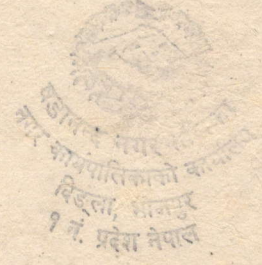 षडानन्द नगर
नगर कार्यपालिकाको कार्यालय
दिङ्ला, भोजपुर
१ नं. प्रदेश नेपाल